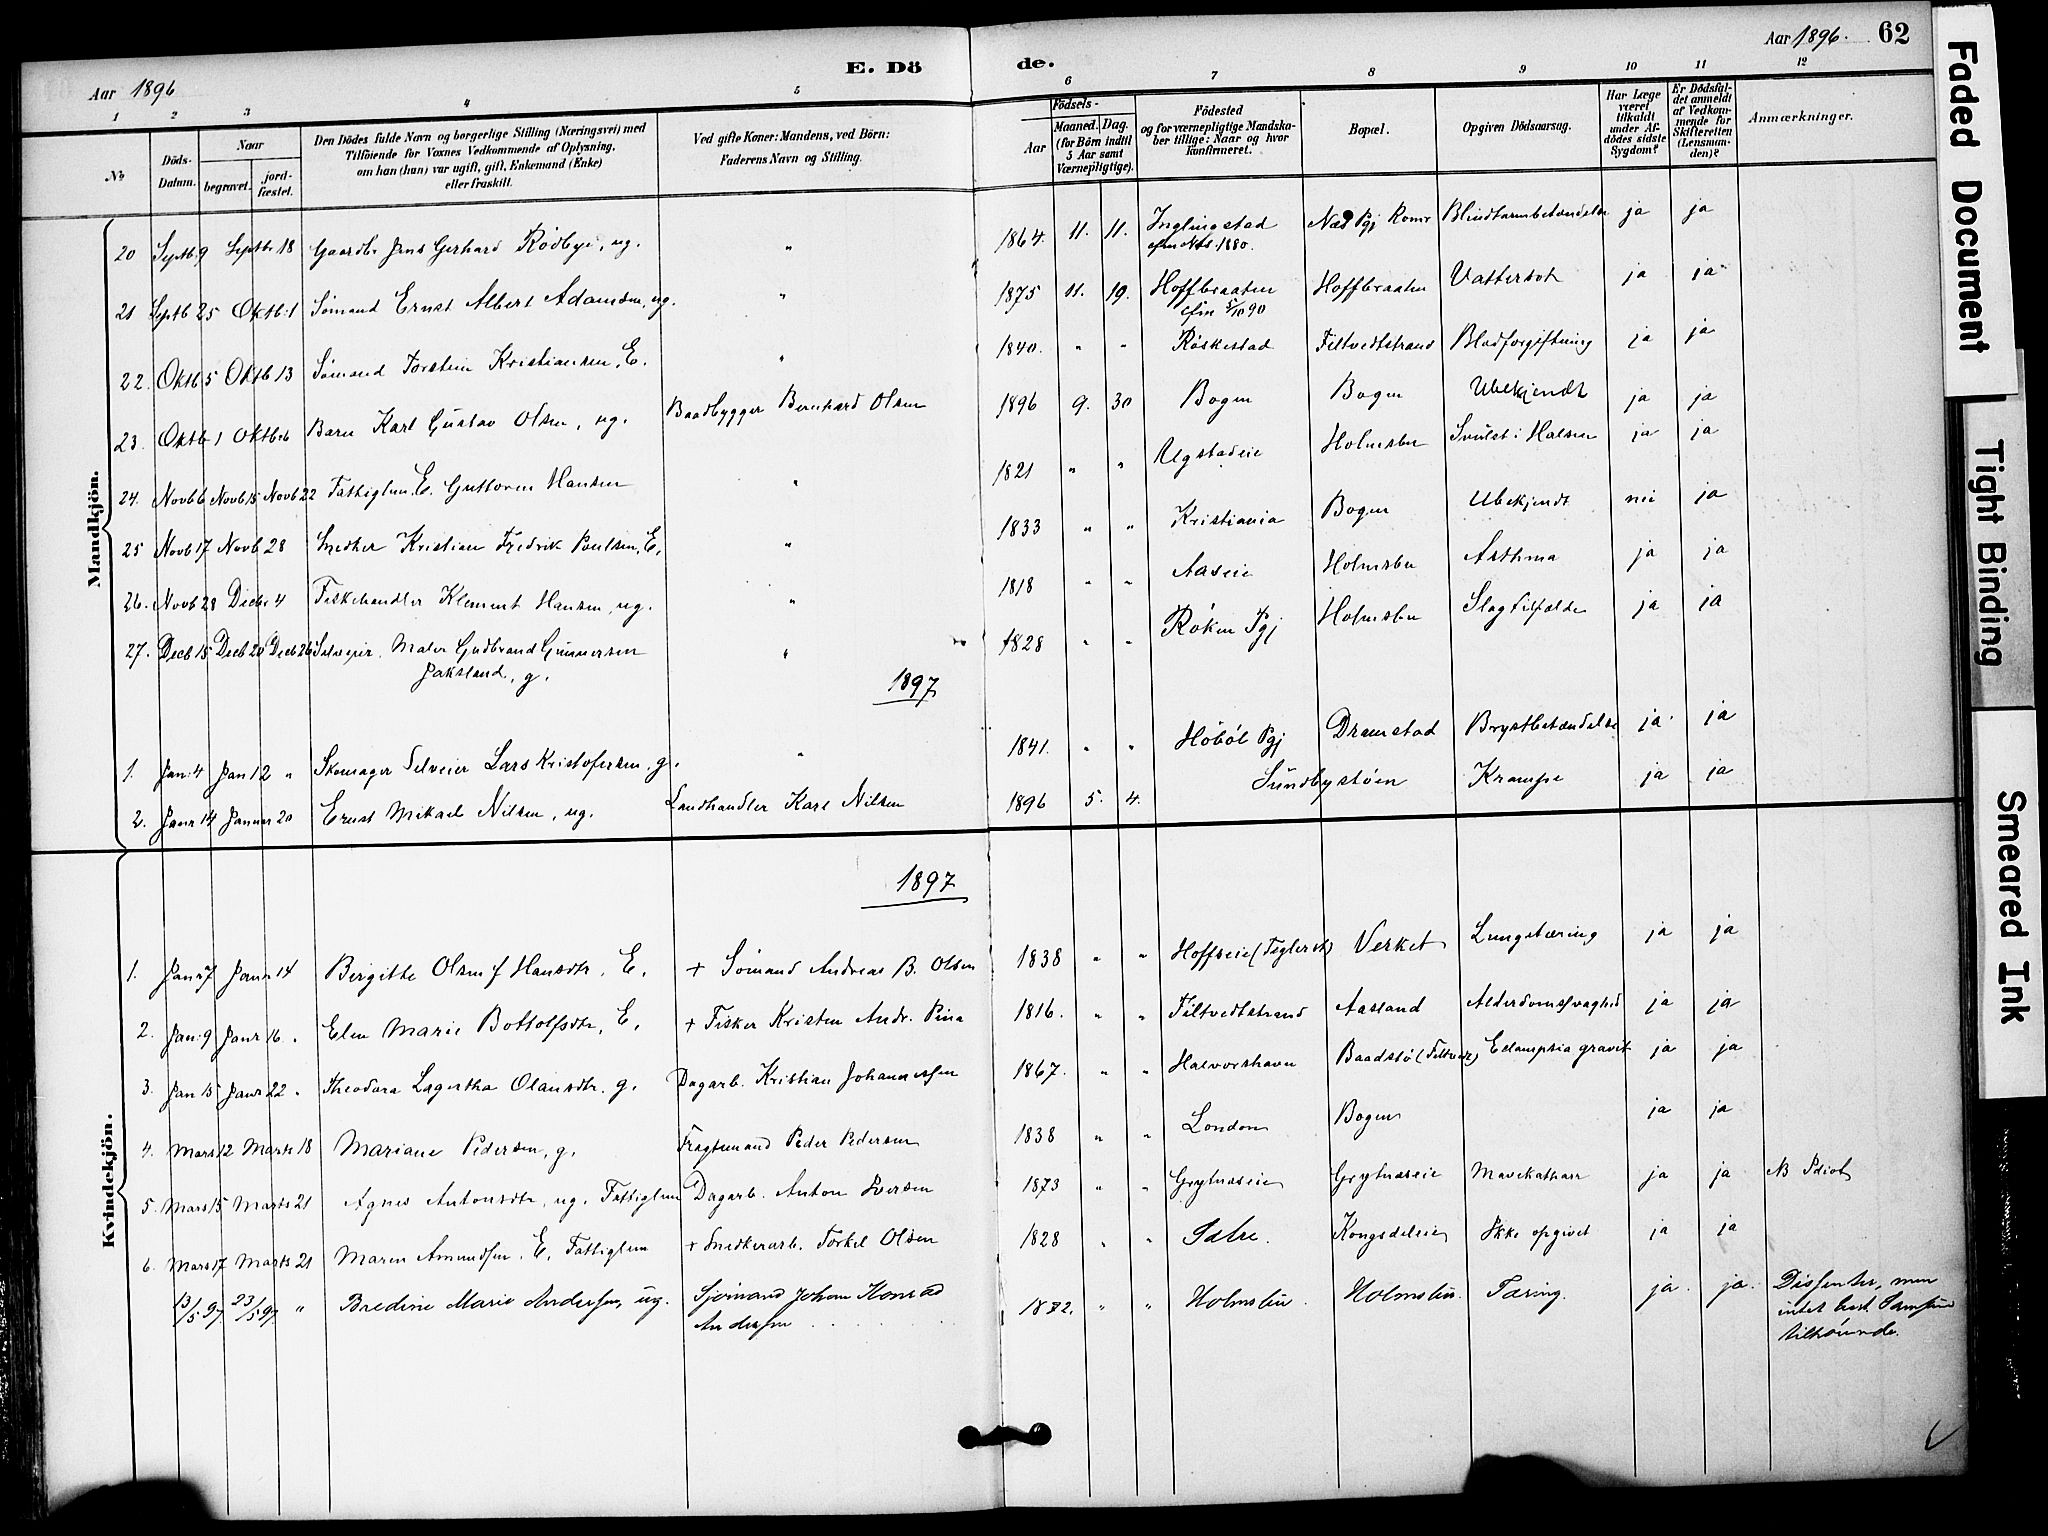 Aar 1896
E. Dö
de.
Aar 1896. 62
1 2 3 4 5 6 7 8 9 10 11 12
No
Döds-Datum.
Naar
begravet.
jord-fæstet.
Den Dödes fulde Navn og borgerlige Stilling (Næringsvei) med
Tilföiende for Voxnes Vedkommende af Oplysning,
om han (hun) var ugift, gift, Enkemand (Enke)
eller fraskilt.
Ved gifte Koner: Mandens, ved Börn:
Faderens Navn og Stilling.
Födsels-
Aar
Maaned. Dag.
(for Börn indtil
5 Aar samt
Værnepligtige).
Födested
og for værnepligtige Mandska-
ber tillige: Naar og hvor
konfirmeret.
Bopæl.
Opgiven Dödsaarsag.
Har Læge
været
tilkaldt
under Af-
dödes sidste
Sygdom?
Er Dödsfal-
det anmeldt
af Vedkom-
mende for
Skifteretten
(Lensman-
den)?
Anmærkninger.
Mandkjön.
20 Septb. 9 Septbr 18 Gaardbr Jens Gerhard Rødbye, ug. " 1864. 11. 11. Inglingstad Næs Pgj Romr Blindtarmbetændelse ja ja
1880.
21 Septb 25 Oktb. 1 Sømand Ernst Albert Adamsen, ug. " 1875 11. 19. Hoffbraaten Hoffbraaten Vattersot ja ja
cfm 5/10 90
22. Oktb 5 Oktb 13 Sømand Torstein Kristiansen, E. " 1840. " " Røskestad Filtvedtstrand Blodforgiftning ja ja
23. Oktb 1 Oktb 6 Barn Karl Gustav Olsen, ug. Baadbygger Bernhard Olsen 1896 9. 30 Bogen Bogen Ubekjendt ja ja
24. Novb 6 Novb 15 Novb 22 Fattiglem. E. Guttorm Hansen " 1821 " " Ugstadeie Holmsbu Svulst i Halsen ja ja
25 Novb 17 Novb 28 Snedker Kristian Fredrik Poulsen, E. " 1833 " " Kristiania Bogen Ubekjendt nei ja
26. Novb 28 Decbr 4 Fiskehandler Klement Hansen, ug. " 1818 " " Aaseie Holmsbu Asthma ja ja
27. Decb 15 Decb 20 Decb 26 Selveier Maler Gudbrand Gunnersen " 1828 " " Røken Pgj Holmsbu Slagtilfælde ja ja
Jaksland, g.
1897
1. Jan. 4 Jan 12 " Skomager Selveier Lars Kristofersen, g. " 1841. " " Høbøl Pgj Dramstad Brystbetændelse ja ja
2. Janr 14 Januar 20 Ernst Mikael Nilsen, ug. Landhandler Karl Nilsen 1896 5. 4. Sundbystøen Krampe ja ja
Kvindekjön.
1897
1. Janr 7 Janr 14 Birgitte Olsen f Hansdtr, E. + Sømand Andreas B. Olsen 1838 " " Hoffseie (Teglerst) Verket Lungetæring ja ja
2. Jan. 9 Janr 16. " Elen Marie Bottolfsdtr, E. + Fisker Kristen Andr. Pina 1816. " " Filtvedtstrand Aasland Alderdomssvaghed ja ja
3. Jan 15 Janr 22 " Theodora Lagertha Olausdtr. g. Dagarb. Kristian Johannessen 1867. " " Halvorshavn Baadstø (Filtvet) Eclampsia gravit ja ja
4. Mars 12 Marts 18 Mariane Pedersen, g. Fragtemand Peder Pedersen 1838 " " London Bogen ja ja
5. Mars 15 Marts 21 Agnes Antonsdtr, ug. Fattiglem Dagarb. Anton Iversen 1873 " " Grytnæseie Grytnæseie Mavekatharr ja ja NB Idiot
6. Mars 17 Marts 21 Maren Amundsen, E. Fattiglem + Snedkerarb. Torkel Olsen 1828 " " Sætre. Kongsdeleie Ikke opgivet ja ja
13/5 97 23/5 97 " Bredine Marie Andersen, ug. Sjømand Johan Konrad 1882. " " Holmsbu. Holmsbu. Tæring. ja. ja. Dissenter, men
Andersen intet best. Samfund
tilhørende.
Faded Document
Tight Binding
Smeared Ink